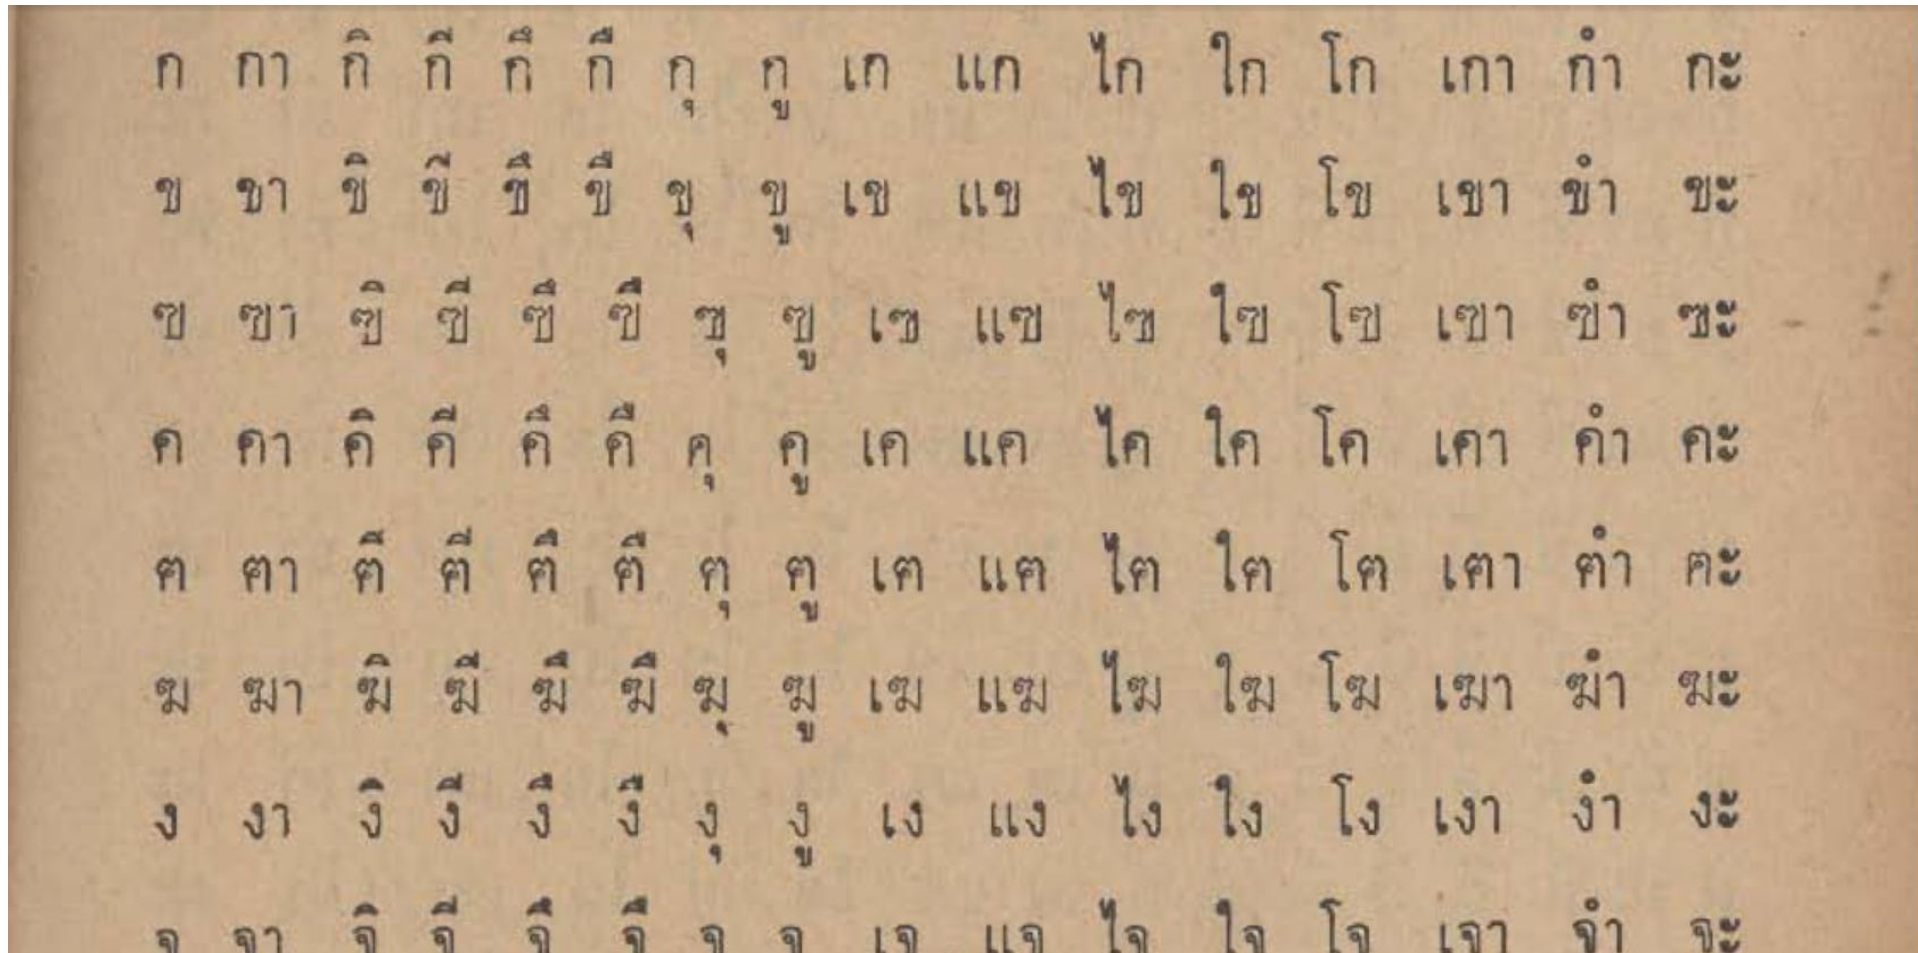 ก กา กิ กี กึ กื กุ กู เก แก ไก ใก โก เกา กำ กะ
ข ขา ขิ ขี ขึ ขื ขุ ขู เข แข ไข ใข โข เขา ขำ ขะ
ฃ ฃา ฃิ ฃี ฃึ ฃื ฃุ ฃู เฃ แฃ ไฃ ใฃ โฃ เฃา ฃำ ฃะ
ค คา คิ คี คึ คื คุ คู เค แค ไค ใค โค เคา คำ คะ
ฅ ฅา ฅิ ฅี ฅึ ฅื ฅุ ฅู เฅ แฅ ไฅ ใฅ โฅ เฅา ฅำ ฅะ
ฆ ฆา ฆิ ฆี ฆึ ฆื ฆุ ฆู เฆ แฆ ไฆ ใฆ โฆ เฆา ฆำ ฆะ
ง งา งิ งี งึ งื งุ งู เง แง ไง ใง โง เงา งำ งะ
จ จา จิ จี จึ จื จ จ เจ แจ ไจ ใจ โจ เจา จำ จะ